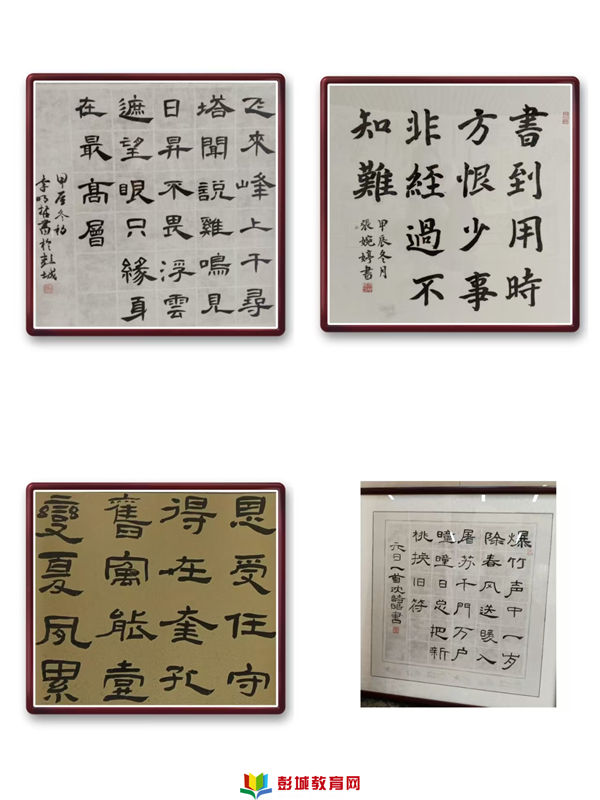 飞來峰上千尋
塔聞說雞鳴見
日昇不畏浮雲
遮望眼只緣身
在最髙層
甲辰冬初
書於彭城
書到用時
方恨少事
非經過不
知難
甲辰冬月
張婉婷書
恩受任守
得在奎孔
舊寓能壹
變夏夙累
爆竹声中一岁
除春风送暖入
屠苏千門万户
曈曈日总把新
桃换旧符
元日一首沈書
彭城教育网